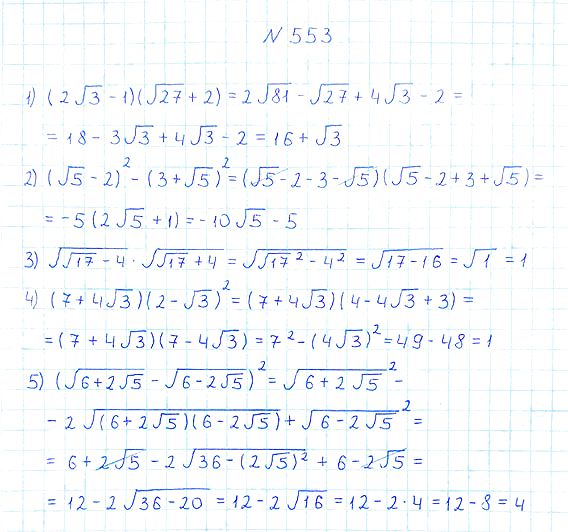 N 553
1) (2√3 - 1)(√27 + 2) = 2√81 - √27 + 4√3 - 2 =
= 18 - 3√3 + 4√3 - 2 = 16 + √3
2) (√5 - 2)² - (3 + √5)² = (√5 - 2 - 3 - √5)(√5 - 2 + 3 + √5) =
= -5(2√5 + 1) = -10√5 - 5
3) √(√17 - 4) · √(√17 + 4) = √(√17² - 4²) = √(17 - 16) = √1 = 1
4) (7 + 4√3)(2 - √3)² = (7 + 4√3)(4 - 4√3 + 3) =
= (7 + 4√3)(7 - 4√3) = 7² - (4√3)² = 49 - 48 = 1
5) (√(6 + 2√5) - √(6 - 2√5))² = √(6 + 2√5)² -
- 2√((6 + 2√5)(6 - 2√5)) + √(6 - 2√5)² =
= 6 + 2√5 - 2√(36 - (2√5)²) + 6 - 2√5 =
= 12 - 2√(36 - 20) = 12 - 2√16 = 12 - 2 · 4 = 12 - 8 = 4